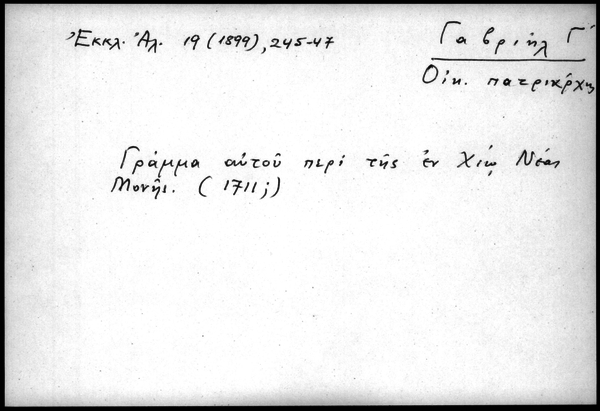 Ἐκκλ. Ἀλ. 19 (1899), 245-47
Γαβριὴλ Γ΄
Οἰκ. πατριάρχης
Γράμμα αὐτοῦ περὶ τῆς ἐν Χίῳ Νέας
Μονῆς. (1711;)